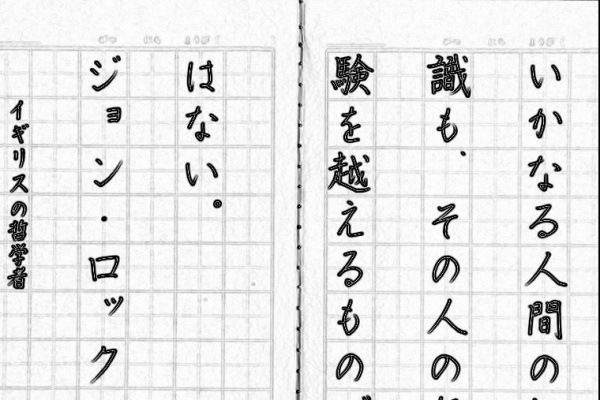 いかなる人間の
識も、その人の
験を越えるもの
はない。
ジョン・ロック
イギリスの哲学者